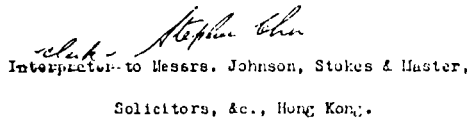 Stephen Chu
clerk
Interpreter to Messrs. Johnson, Stokes & Master,
Solicitors, &c., Hong Kong.